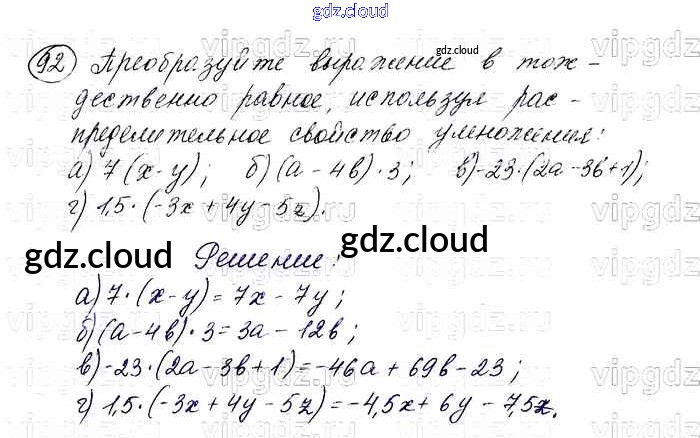 gdz.cloud
gdz.cloud
92 Преобразуйте выражение в тож-
дественно равное, используя рас-
пределительное свойство умножения:
а) 7(x-y); б) (a-4b)·3; в) -23·(2a-3b+1);
г) 1,5·(-3x+4y-5z).
gdz.cloud Решение: gdz.cloud
а) 7·(x-y)=7x-7y;
б) (a-4b)·3=3a-12b;
в) -23·(2a-3b+1)=-46a+69b-23;
г) 1,5·(-3x+4y-5z)=-4,5x+6y-7,5z.